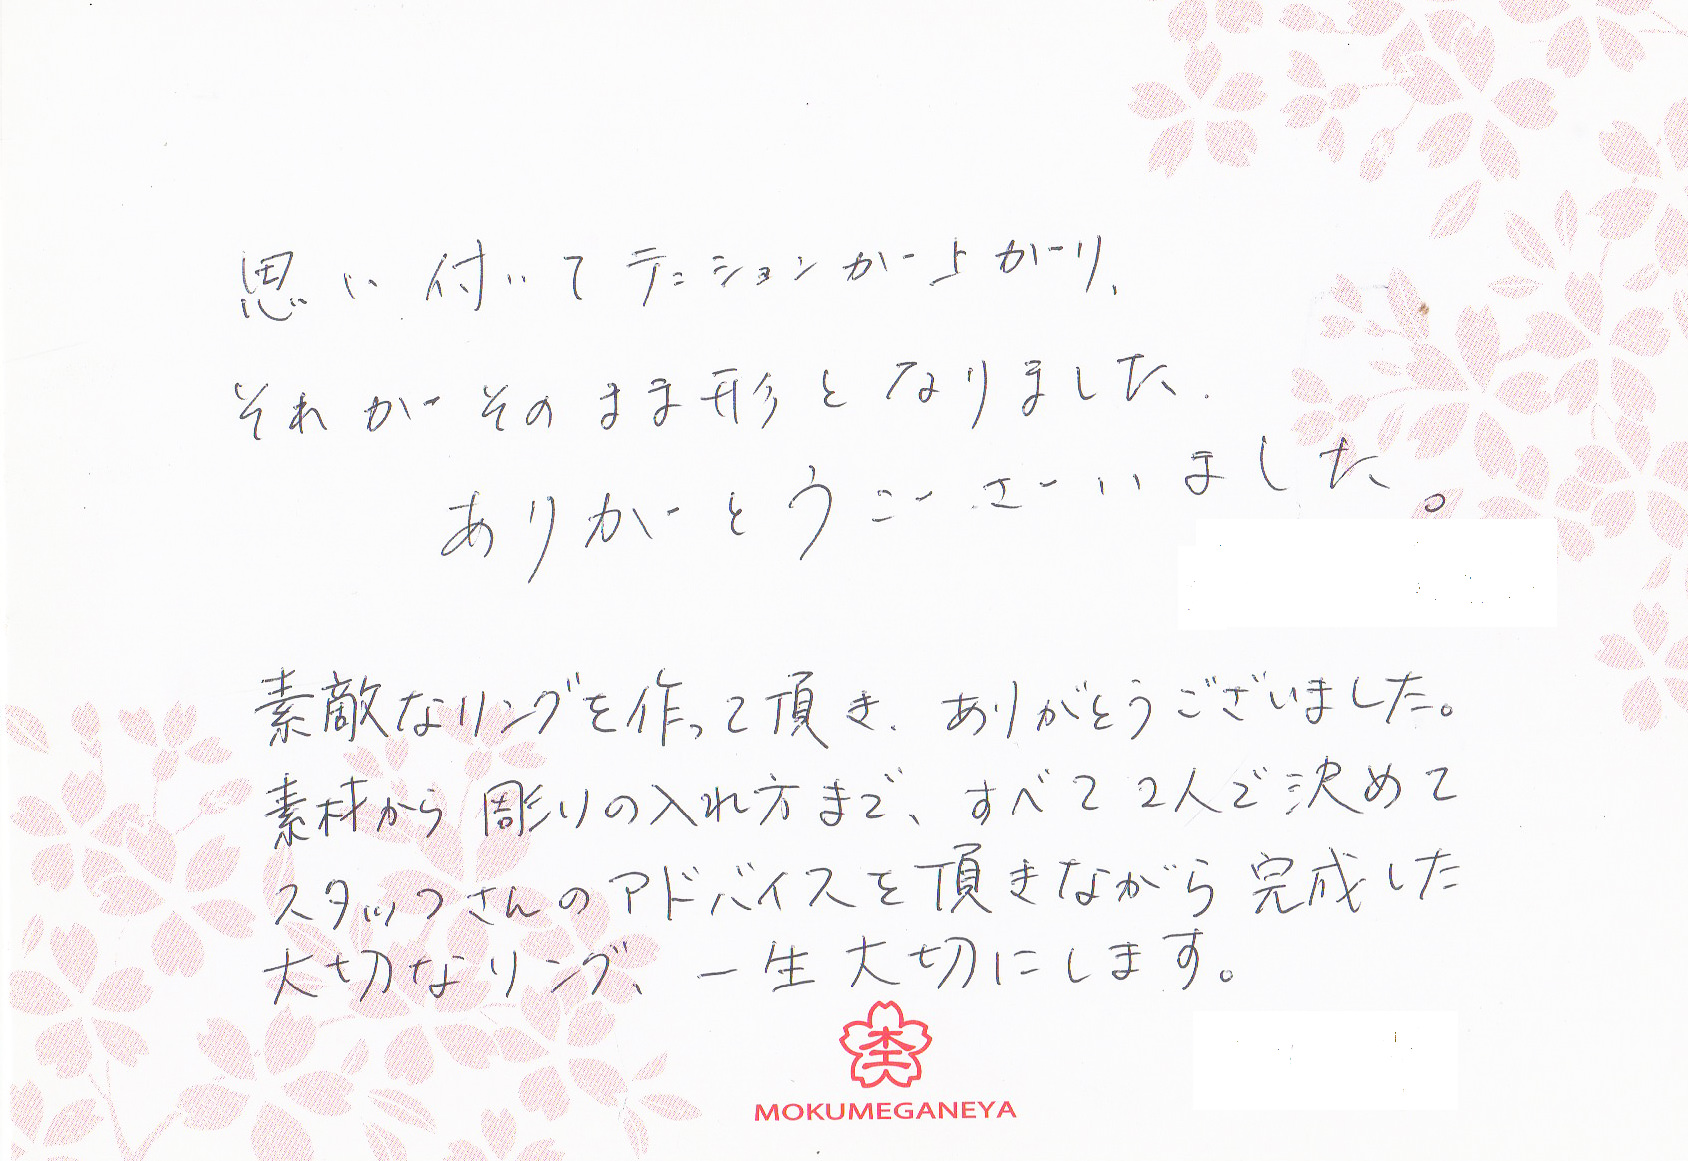 思い付いてテンションが上がり、
それがそのまま形となりました。
ありがとうございました。
素敵なリングを作って頂き、ありがとうございました。
素材から彫りの入れ方まで、すべて2人で決めて
スタッフさんのアドバイスを頂きながら完成した
大切なリング、一生大切にします。
MOKUMEGANEYA